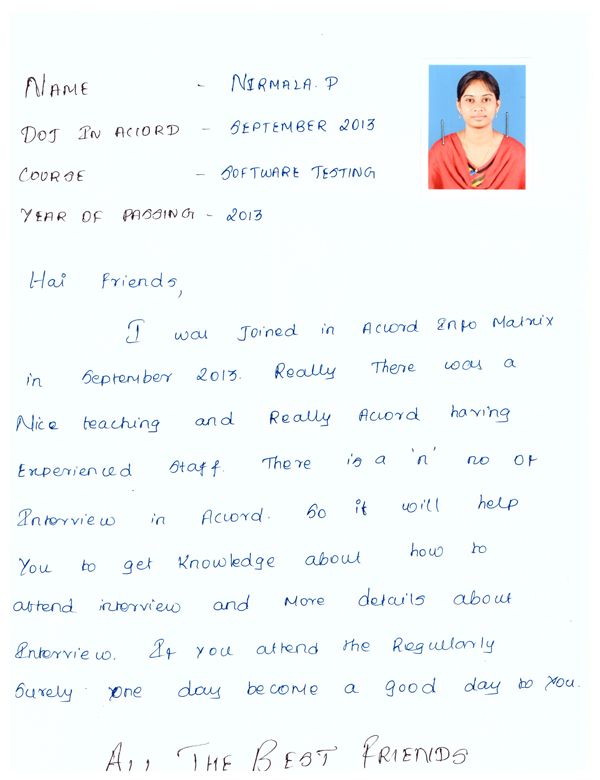 NAME - NIRMALA. P
DOJ IN ACCORD - SEPTEMBER 2013
COURSE - SOFTWARE TESTING
YEAR OF PASSING - 2013
Hai Friends,
I was Joined in Accord Info Matrix
in September 2013. Really There was a
Nice teaching and Really Accord having
Experienced Staff. There is a 'n' no of
Interview in Accord. So it will help
You to get Knowledge about how to
attend interview and More details about
Interview. If you attend the Regullarly
Surely one day become a good day to You.
ALL THE BEST FRIENDS